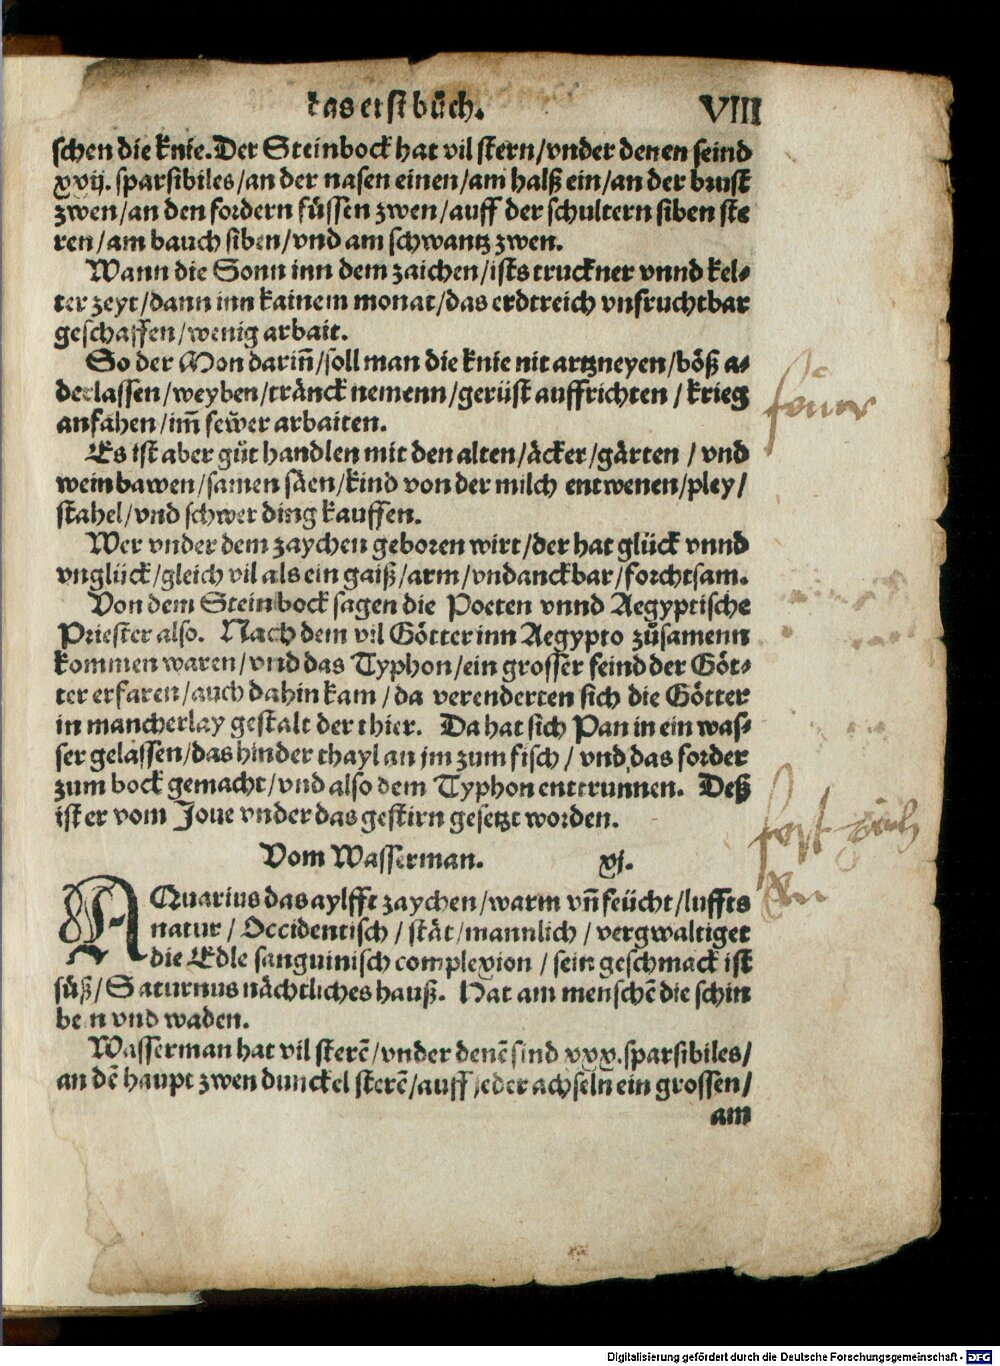 das erst bůch. VIII
schen die knie. Der Steinbock hat vil stern/vnder denen seind
xvij. sparsibiles/an der nasen einen/am halß ein/an der brust
zwen/an den fordern füssen zwen/auff der schultern siben ste
ren/am bauch siben/vnd am schwantz zwen.
Wann die Sonn inn dem zaichen/ists truckner vnnd kel-
ter zeyt/dann inn kainem monat/das erdtreich vnfruchtbar
geschaffen/wenig arbait.
So der Mon dariñ/soll man die knie nit artzneyen/böß a-
derlassen/weyben/tränck nemenn/gerüst auffrichten/krieg
anfahen/im̃ fewer arbaiten.
Es ist aber gůt handlen mit den alten/äcker/gärten/vnd
wein bawen/samen säen/kind von der milch entwenen/pley/
stahel/vnd schwer ding kauffen.
Wer vnder dem zaychen geboren wirt/der hat glück vnnd
vnglück/gleich vil als ein gaiß/arm/vndanckbar/forchtsam.
Von dem Steinbock sagen die Poeten vnnd Aegyptische
Priester also. Nach dem vil Götter inn Aegypto zůsamenn
kommen waren/vnd das Typhon/ein grosser feind der Göt-
ter erfaren/auch dahin kam/da verenderten sich die Götter
in mancherlay gestalt der thier. Da hat sich Pan in ein was-
ser gelassen/das hinder thayl an jm zum fisch/vnd das forder
zum bock gemacht/vnd also dem Typhon entrunnen. Deß
ist er vom Joue vnder das gestirn gesetzt worden.
Vom Wasserman. xj.
AQuarius das aylfft zaychen/warm vñ feücht/luffts
natur/Occidentisch/stät/mannlich/vergwaltiget
die Edle sanguinisch complexion/sein geschmack ist
süß/Saturnus nächtliches hauß. Hat am menschē die schin
bein vnd waden.
Wasserman hat vil sterē/vnder denē sind xxx. sparsibiles/
an dē haupt zwen dunckel sterē/auff jeder achseln ein grossen/
am
feuer
Digitalisierung gefördert durch die Deutsche Forschungsgemeinschaft - DFG